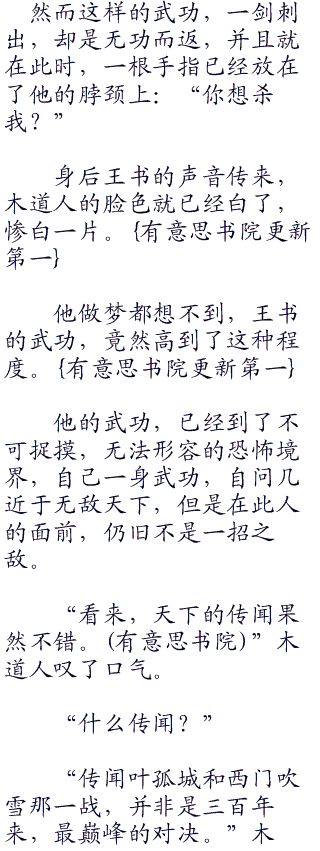 然而这样的武功，一剑刺
出，却是无功而返，并且就
在此时，一根手指已经放在
了他的脖颈上：“你想杀
我？”
身后王书的声音传来，
木道人的脸色就已经白了，
惨白一片。{有意思书院更新
第一}
他做梦都想不到，王书
的武功，竟然高到了这种程
度。{有意思书院更新第一}
他的武功，已经到了不
可捉摸，无法形容的恐怖境
界，自己一身武功，自问几
近于无敌天下，但是在此人
的面前，仍旧不是一招之
敌。
“看来，天下的传闻果
然不错。(有意思书院)”木
道人叹了口气。
“什么传闻？”
“传闻叶孤城和西门吹
雪那一战，并非是三百年
来，最巅峰的对决。”木